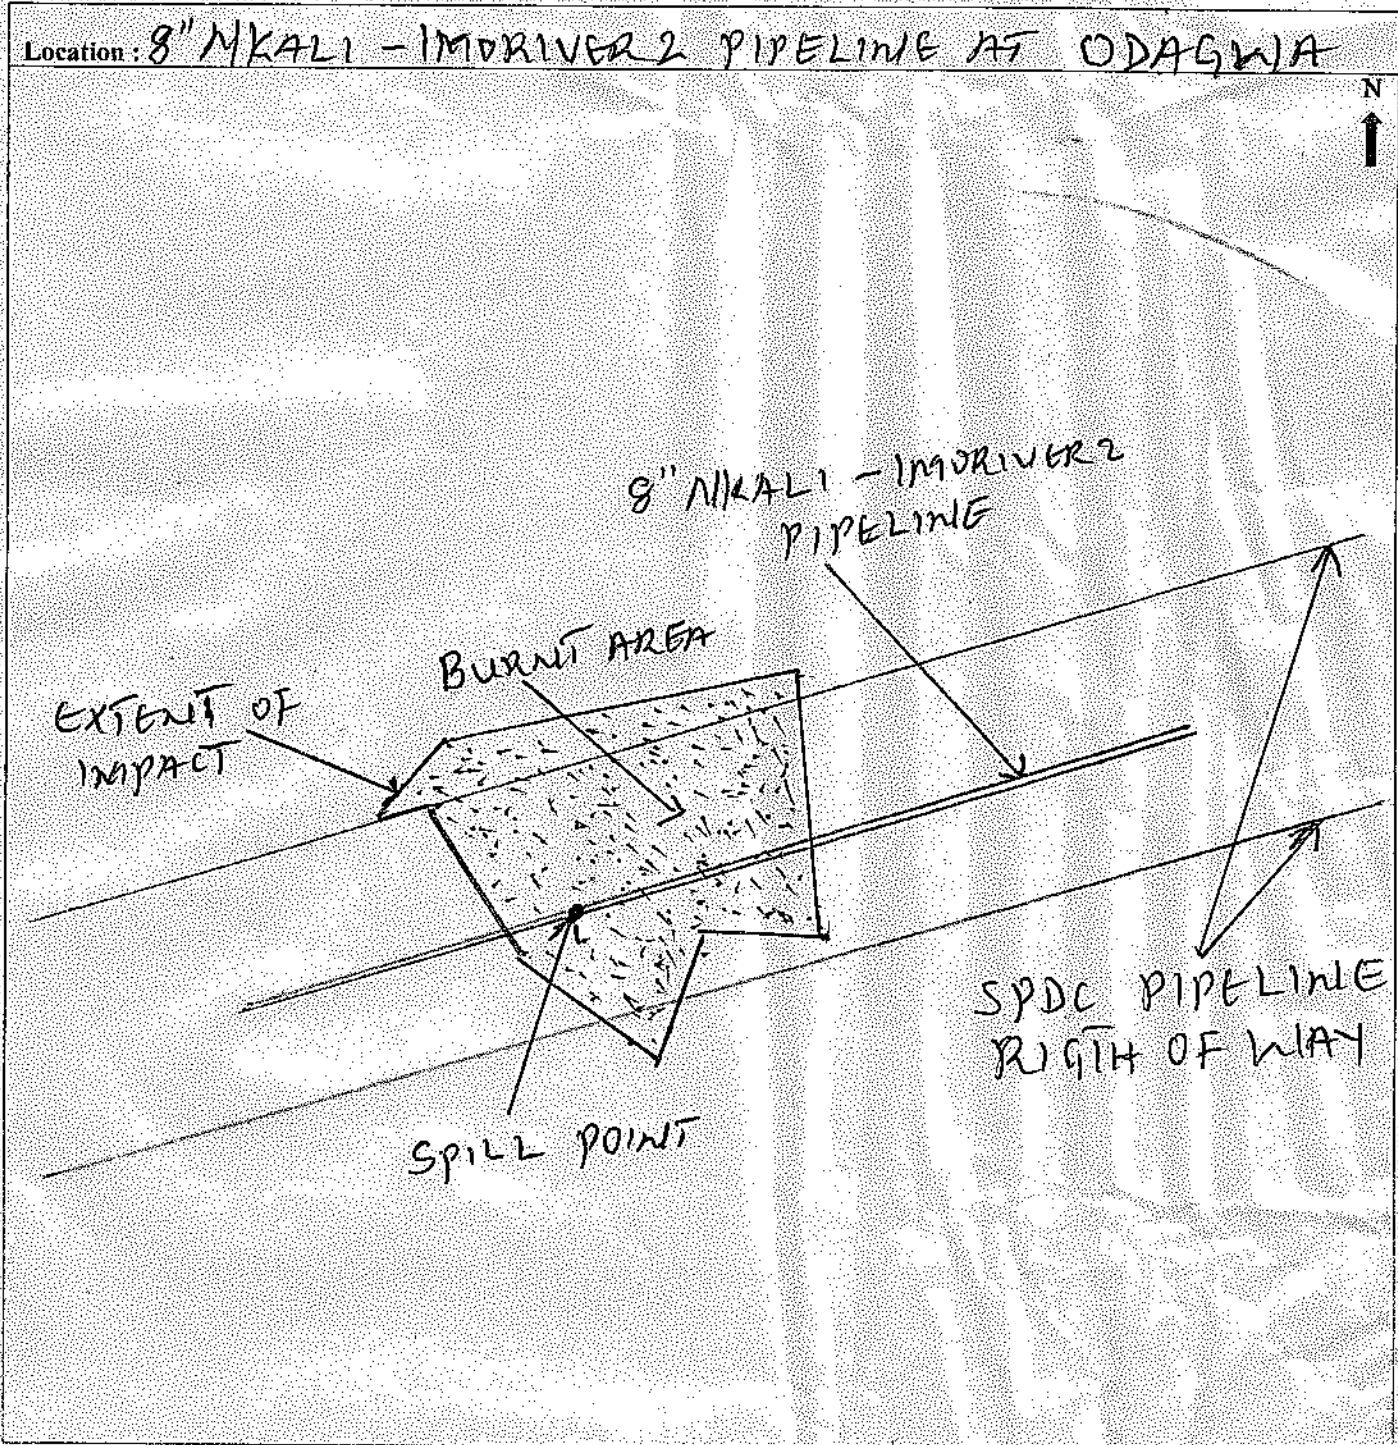 Location : 8" NKALI - IMORIVER2 PIPELINE AT ODAGWA
N
8" NKALI - IMORIVER2
PIPELINE
BURNT AREA
EXTENT OF
IMPACT
SPDC PIPELINE
RIGTH OF WAY
SPILL POINT